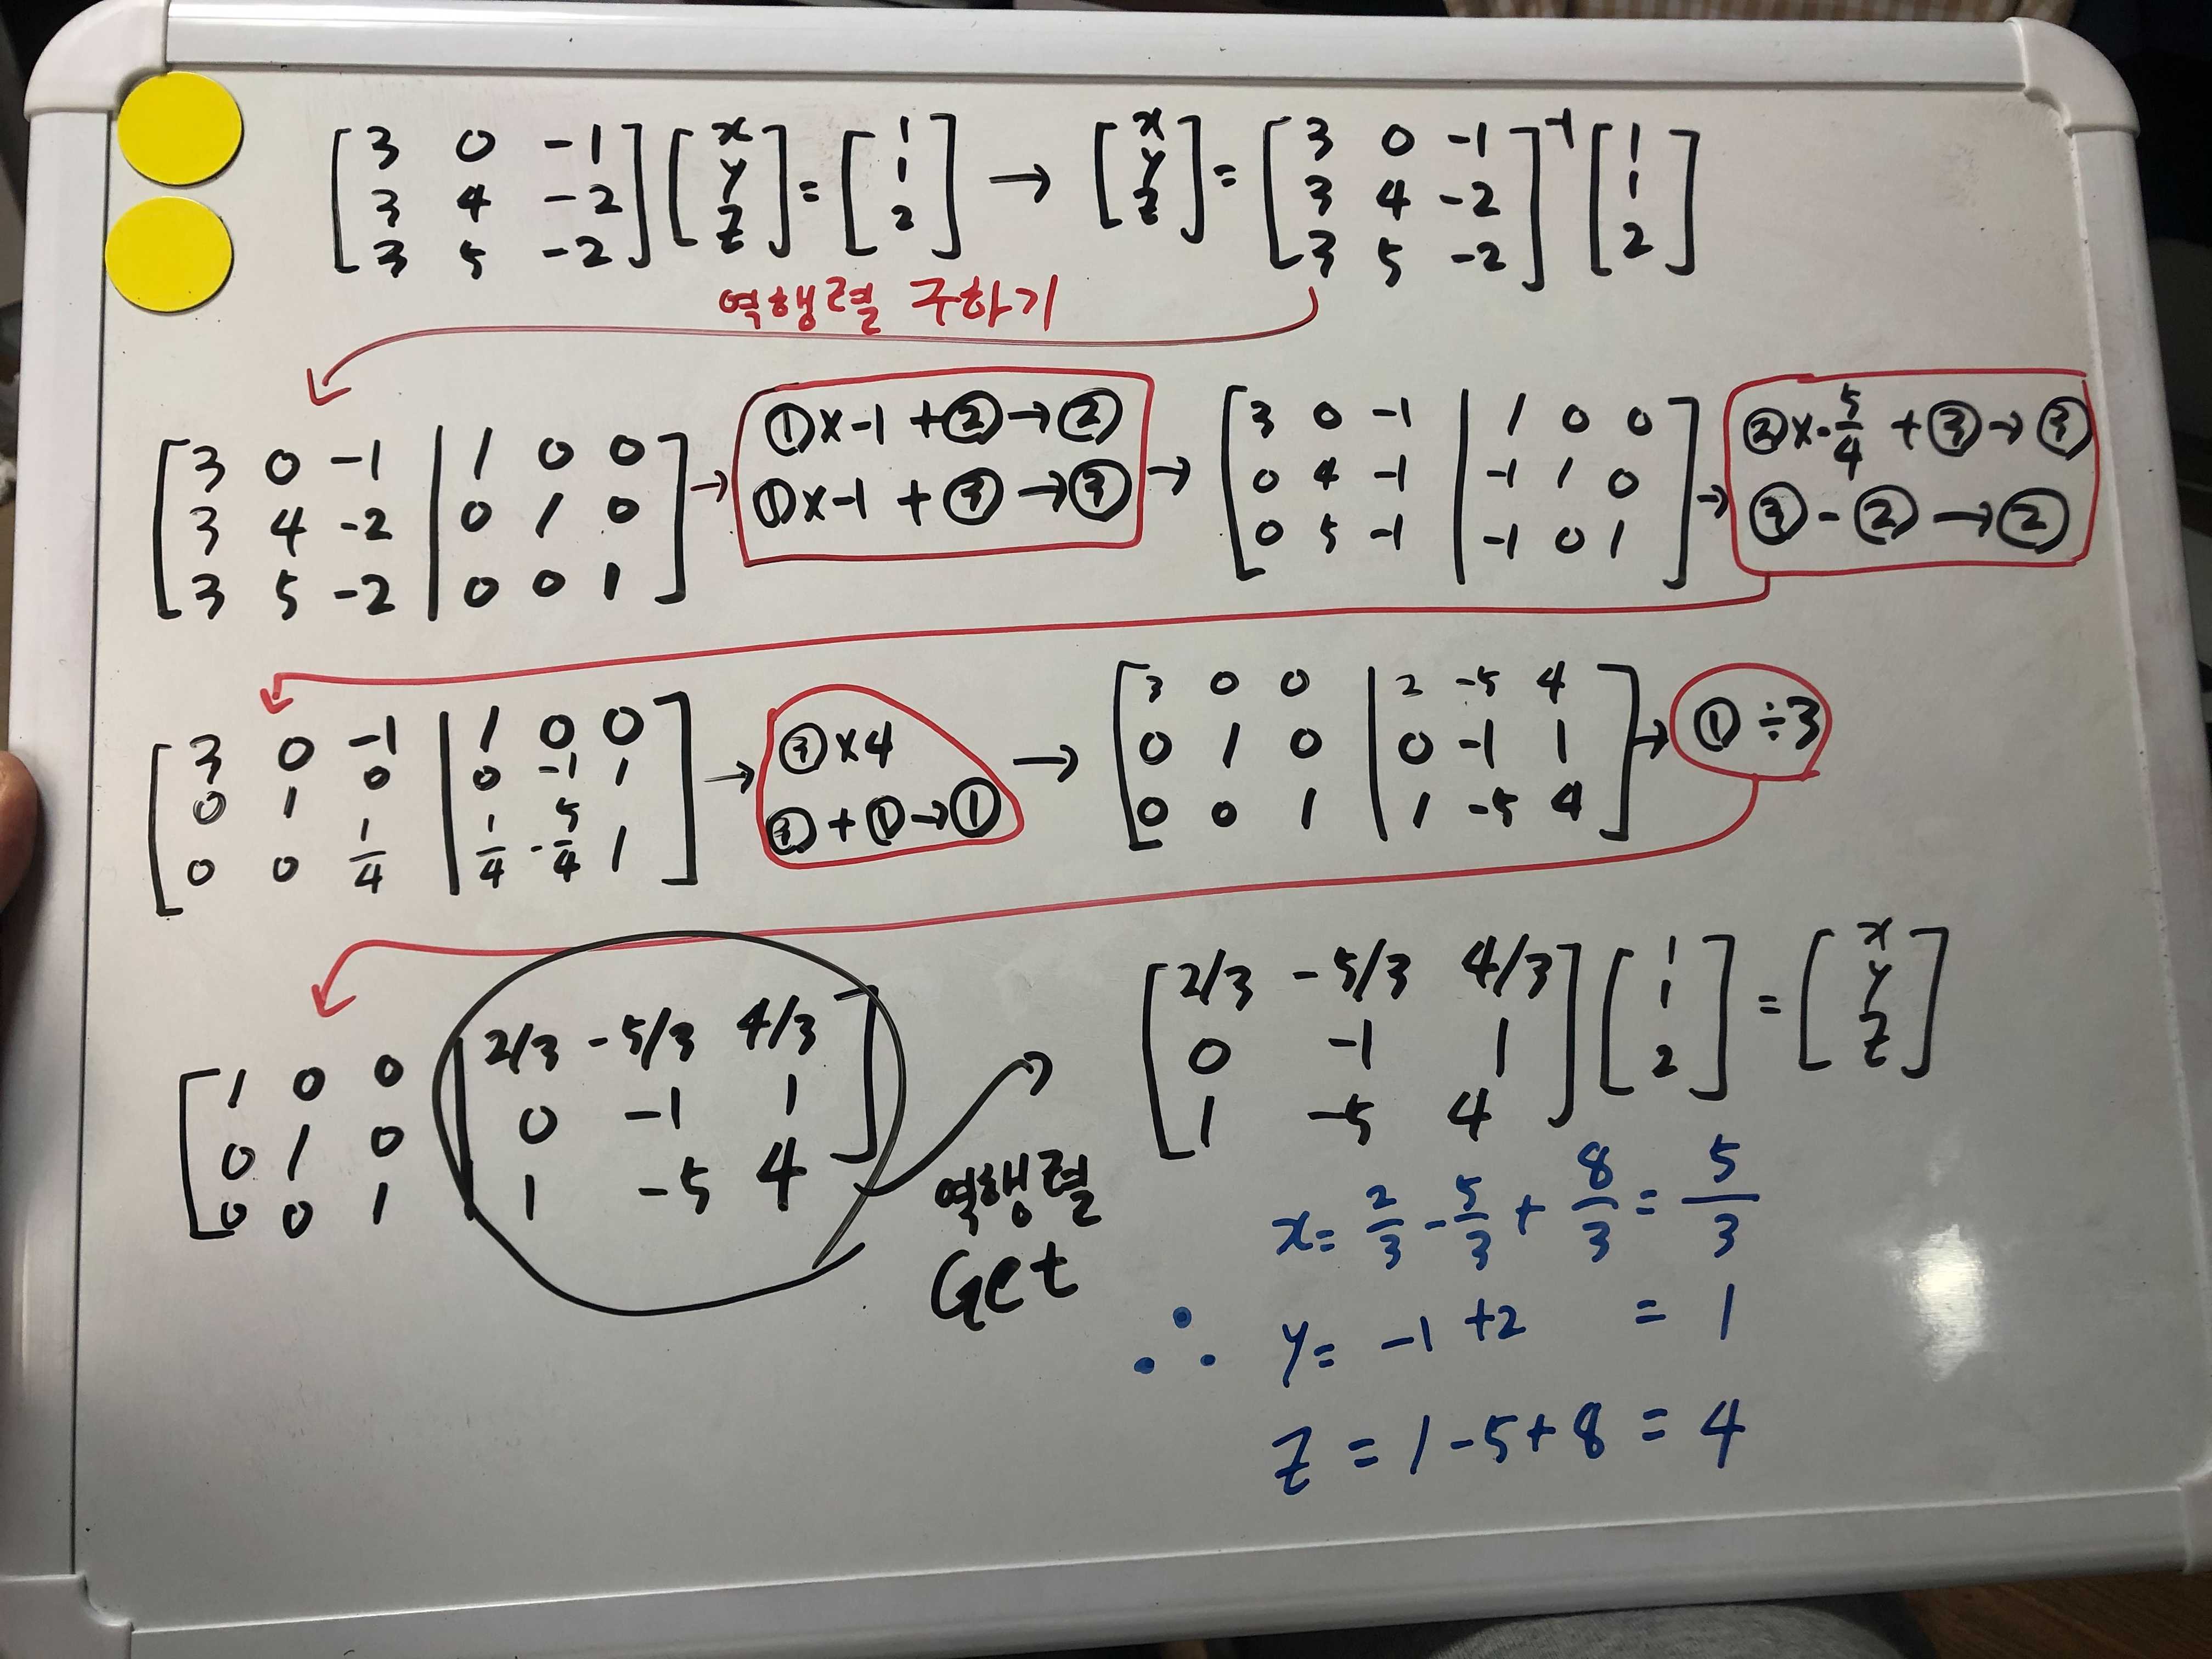 [3 0 -1 [x [1 → [x [3 0 -1 ]-1 [1
3 4 -2 y = 1 y = 3 4 -2 1
3 5 -2] z] 2] z] 3 5 -2 2]
역행렬 구하기
[3 0 -1 | 1 0 0
3 4 -2 | 0 1 0
3 5 -2 | 0 0 1]
→
①x-1 +②→②
①x-1 + ③→③
→
[3 0 -1 | 1 0 0
0 4 -1 | -1 1 0
0 5 -1 | -1 0 1]
→
②x-5/4 + ③→③
③-②→②
[3 0 -1 | 1 0 0
0 1 0 | 0 -1 1
0 0 1/4 | 1/4 -5/4 1]
→
③x4
③+①→①
→
[3 0 0 | 2 -5 4
0 1 0 | 0 -1 1
0 0 1 | 1 -5 4]
→
①÷3
[1 0 0 | 2/3 -5/3 4/3
0 1 0 | 0 -1 1
0 0 1 | 1 -5 4]
역행렬
Get
[2/3 -5/3 4/3 ] [1 [x
0 -1 1 1 = y
1 -5 4] 2] z]
x= 2/3 - 5/3 + 8/3 = 5/3
∴ y= -1 +2 = 1
z = 1-5+8 = 4